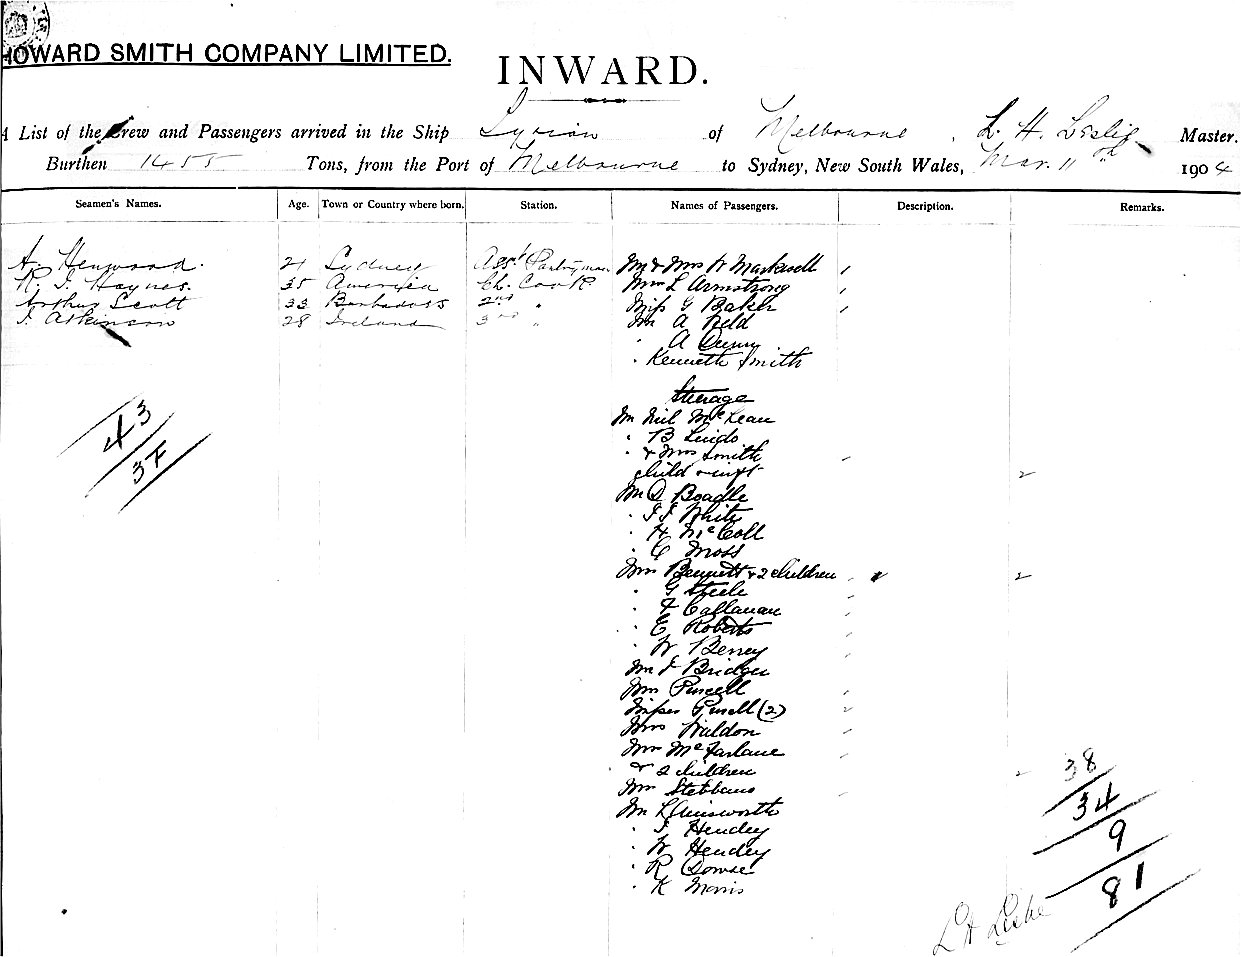 HOWARD SMITH COMPANY LIMITED.
INWARD.
A List of the Crew and Passengers arrived in the Ship Syrian of Melbourne, L. H. Leslie Master.
Burthen 1455 Tons, from the Port of Melbourne to Sydney, New South Wales, Mar. 11th 1904
Seamen's Names. Age. Town or Country where born. Station. Names of Passengers. Description. Remarks.
A. Henwood. 21 Sydney Asst Pantryman Mr & Mrs W Markwell
R. J. Haynes. 35 America Ch. Cook Mrs L Armstrong
Arthur Scott 33 Barbadoes 2nd " Miss G Baker
J. Atkinson 28 Ireland 3rd " Mr A Reld
" A Dunn
" Kenneth Smith
Steerage
Mr Neil McLean
" B Lindo
" & Mrs Smith
child & inft 2
Mr D Beadle
" J J White
" H McColl
" C Moss
Mrs Bennett & 2 children 2
" G Steele
" F Callanan
" E Roberts
" W Berrey
Mr J Bridger
Mrs Purcell
Misses Purcell (2) 2
Mrs Waldon
Mrs McFarlane
& 2 children 2
Mrs Stebbans
Mr L Ainsworth
" J Hendey
" W Hendey
" R Dowse
" K Morris
43
37
38
34
9
81
L H Leslie